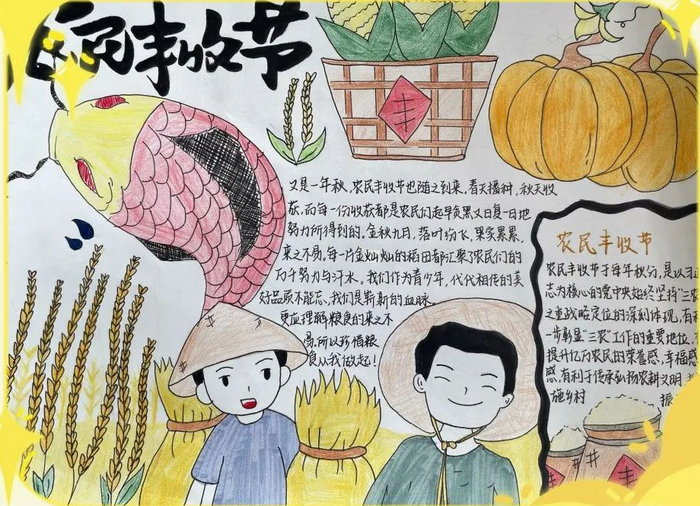 农民丰收节
丰
又是一年秋,农民丰收节也随之到来。春天播种,秋天收
获,而每一份收获都是农民们起早贪黑又日复一日地
努力所得到的,金秋九月,落叶纷飞,果实累累,
来之不易,每一片金灿灿的稻田都汇聚了农民们的
万千努力与汗水。我们作为青少年,代代相传的美
好品质不能忘,我们是崭新的血脉,
更应理解粮食的来之不
易,所以珍惜粮
食从我做起!
农民丰收节
农民丰收节于每年秋分,是以习
志为核心的党中央始终坚持"三农
之重战略定位的深刻体现,有
一步彰显"三农"工作的重要地位,
提升亿万农民的荣誉感,幸福感
感,有利于传承弘扬农耕文明
施乡村 振